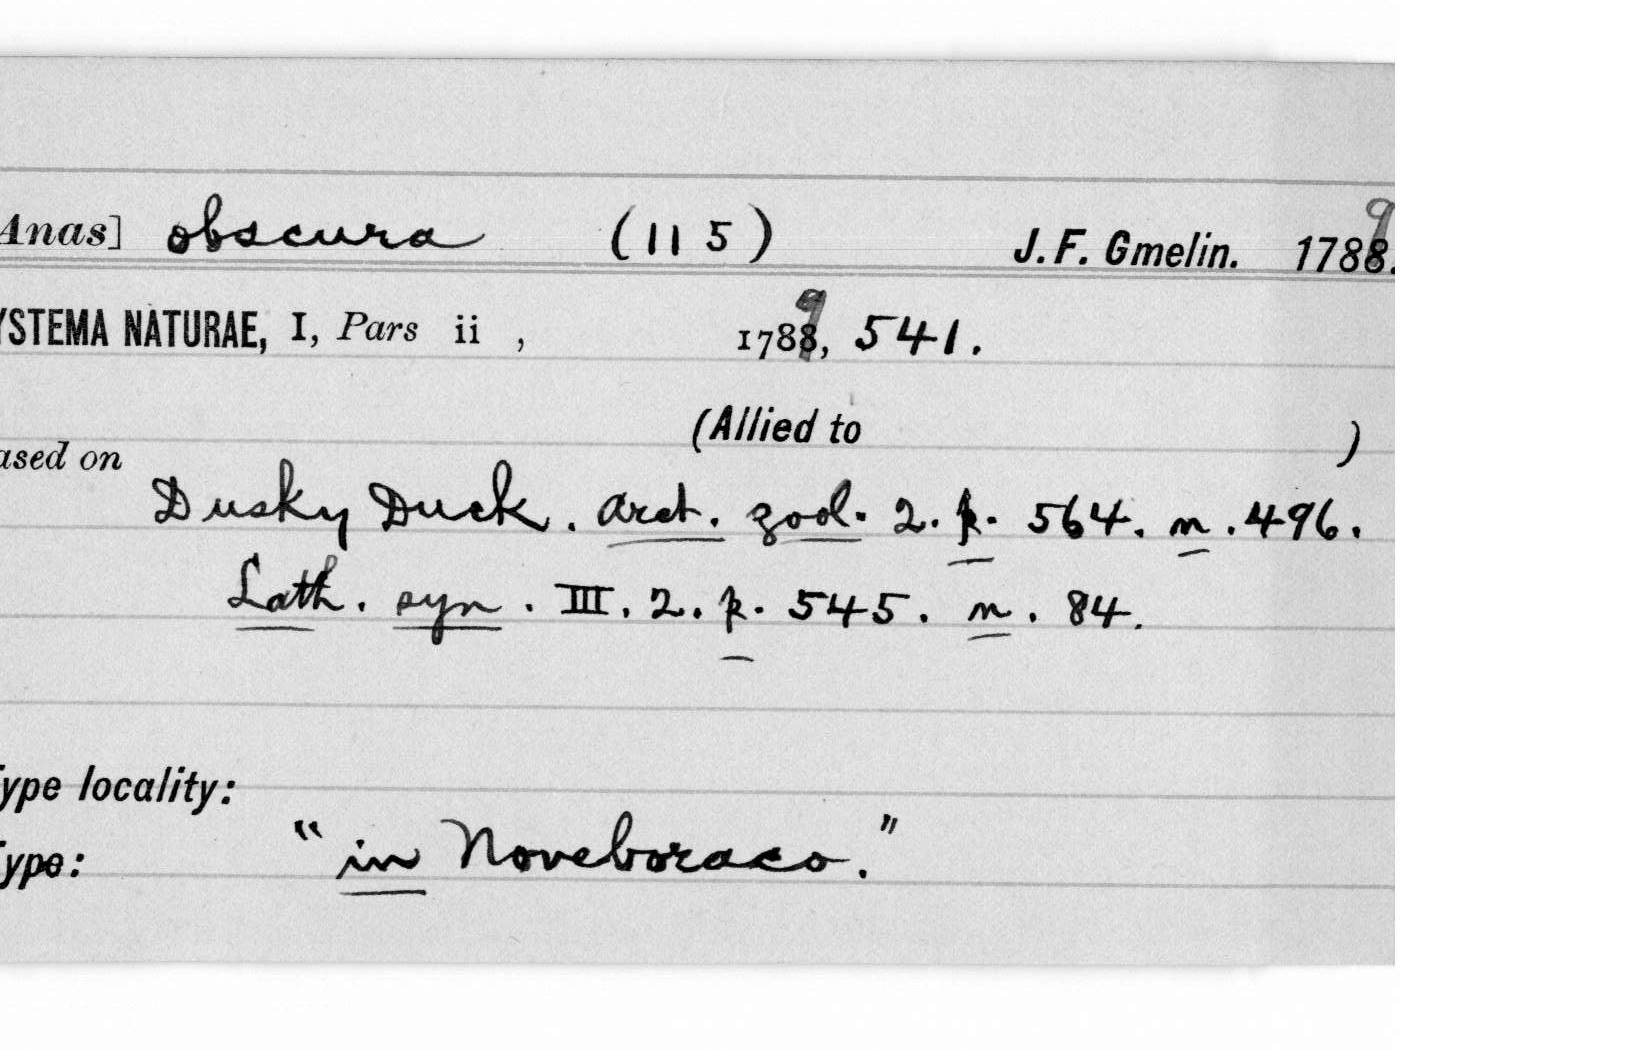 Anas] obscura (115) J. F. Gmelin. 1789.
YSTEMA NATURAE, I, Pars ii , 1789, 541.
(Allied to )
ased on
Dusky Duck. arct. zool. 2. p. 564. n. 496.
Lath. syn. III. 2. p. 545. n. 84.
ype locality:
ype: "in Noveboraco."